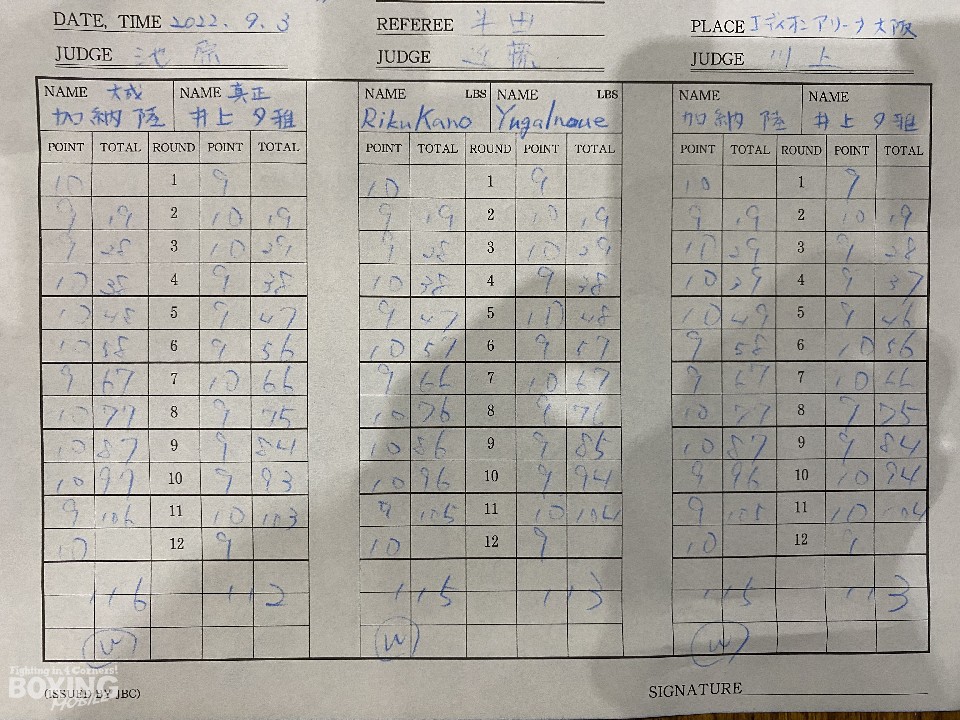 DATE, TIME 2022. 9. 3 REFEREE 半田 PLACE エディオンアリーナ大阪
JUDGE 池原 JUDGE 近藤 JUDGE 川上
NAME 大成 NAME 真正 NAME LBS NAME LBS NAME NAME
加納 陸 井上 夕雅 Riku Kano Yuga Inoue 加納 陸 井上 夕雅
POINT TOTAL ROUND POINT TOTAL POINT TOTAL ROUND POINT TOTAL POINT TOTAL ROUND POINT TOTAL
10 1 9 10 1 9 10 1 9
9 19 2 10 19 9 19 2 10 19 9 19 2 10 19
9 28 3 10 29 9 28 3 10 29 10 29 3 9 28
10 38 4 9 38 10 38 4 9 38 10 39 4 9 37
10 48 5 9 47 9 47 5 10 48 10 49 5 9 46
10 58 6 9 56 10 57 6 9 57 9 58 6 10 56
9 67 7 10 66 9 66 7 10 67 9 67 7 10 66
10 77 8 9 75 10 76 8 9 76 10 77 8 9 75
10 87 9 9 84 10 86 9 9 85 10 87 9 9 84
10 97 10 9 93 10 96 10 9 94 9 96 10 10 94
9 106 11 10 103 9 105 11 10 104 9 105 11 10 104
10 12 9 10 12 9 10 12 9
116 112 115 113 115 113
W W W
Fighting in 4 Corners!
BOXING
MOBILE
(ISSUED BY JBC) SIGNATURE